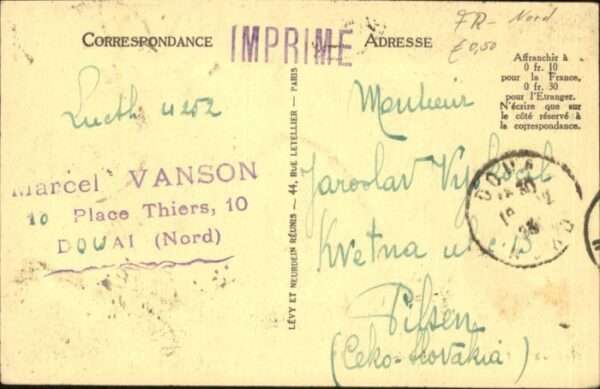 FR- Nord
£ 0,50
CORRESPONDANCE
IMPRIMÉ
ADRESSE
Affranchir à
0 fr. 10
pour la France,
0 fr. 30
pour l'Etranger.
N'écrire que sur
le côté réservé à
la correspondance.
4252
Marcel VANSON
10 Place Thiers, 10
DOUAI (Nord)
LÉVY ET NEURDEIN RÉUNIS — 44, RUE LETELLIER — PARIS
Monsieur
Jaroslav
Kvetna ulice 13
Pilsen
(Ceko-Slovakia)
DOUAI
NORD